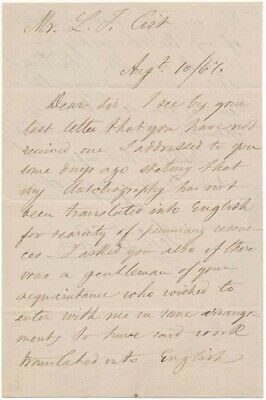 Mr. L. J. Cist
Augt. 10/67.
Dear Sir. I see by your
last letter that you have not
received one I addressed to you
some days ago stating that
my Autobiography has not
been translated into English
for scarcity of pecuniary resour
ces - I asked you also if there
was a gentleman of your
acquaintance who wished to
enter with me in some arrange
ments to have said work
translated into English